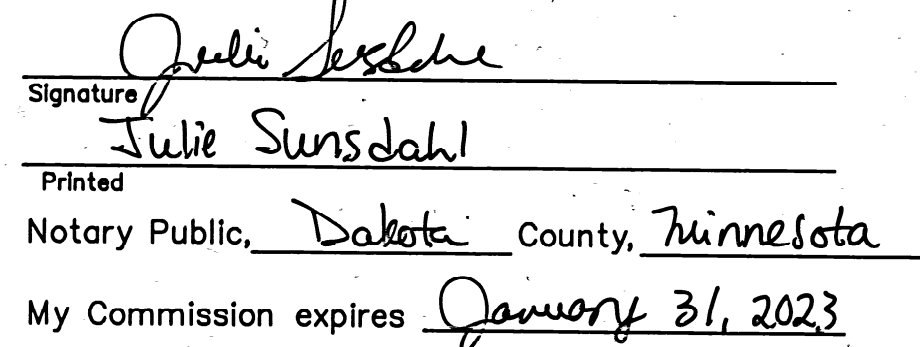 Julie Sunsdahl
Signature
Julie Sunsdahl
Printed
Notary Public, Dakota County, Minnesota
My Commission expires January 31, 2023